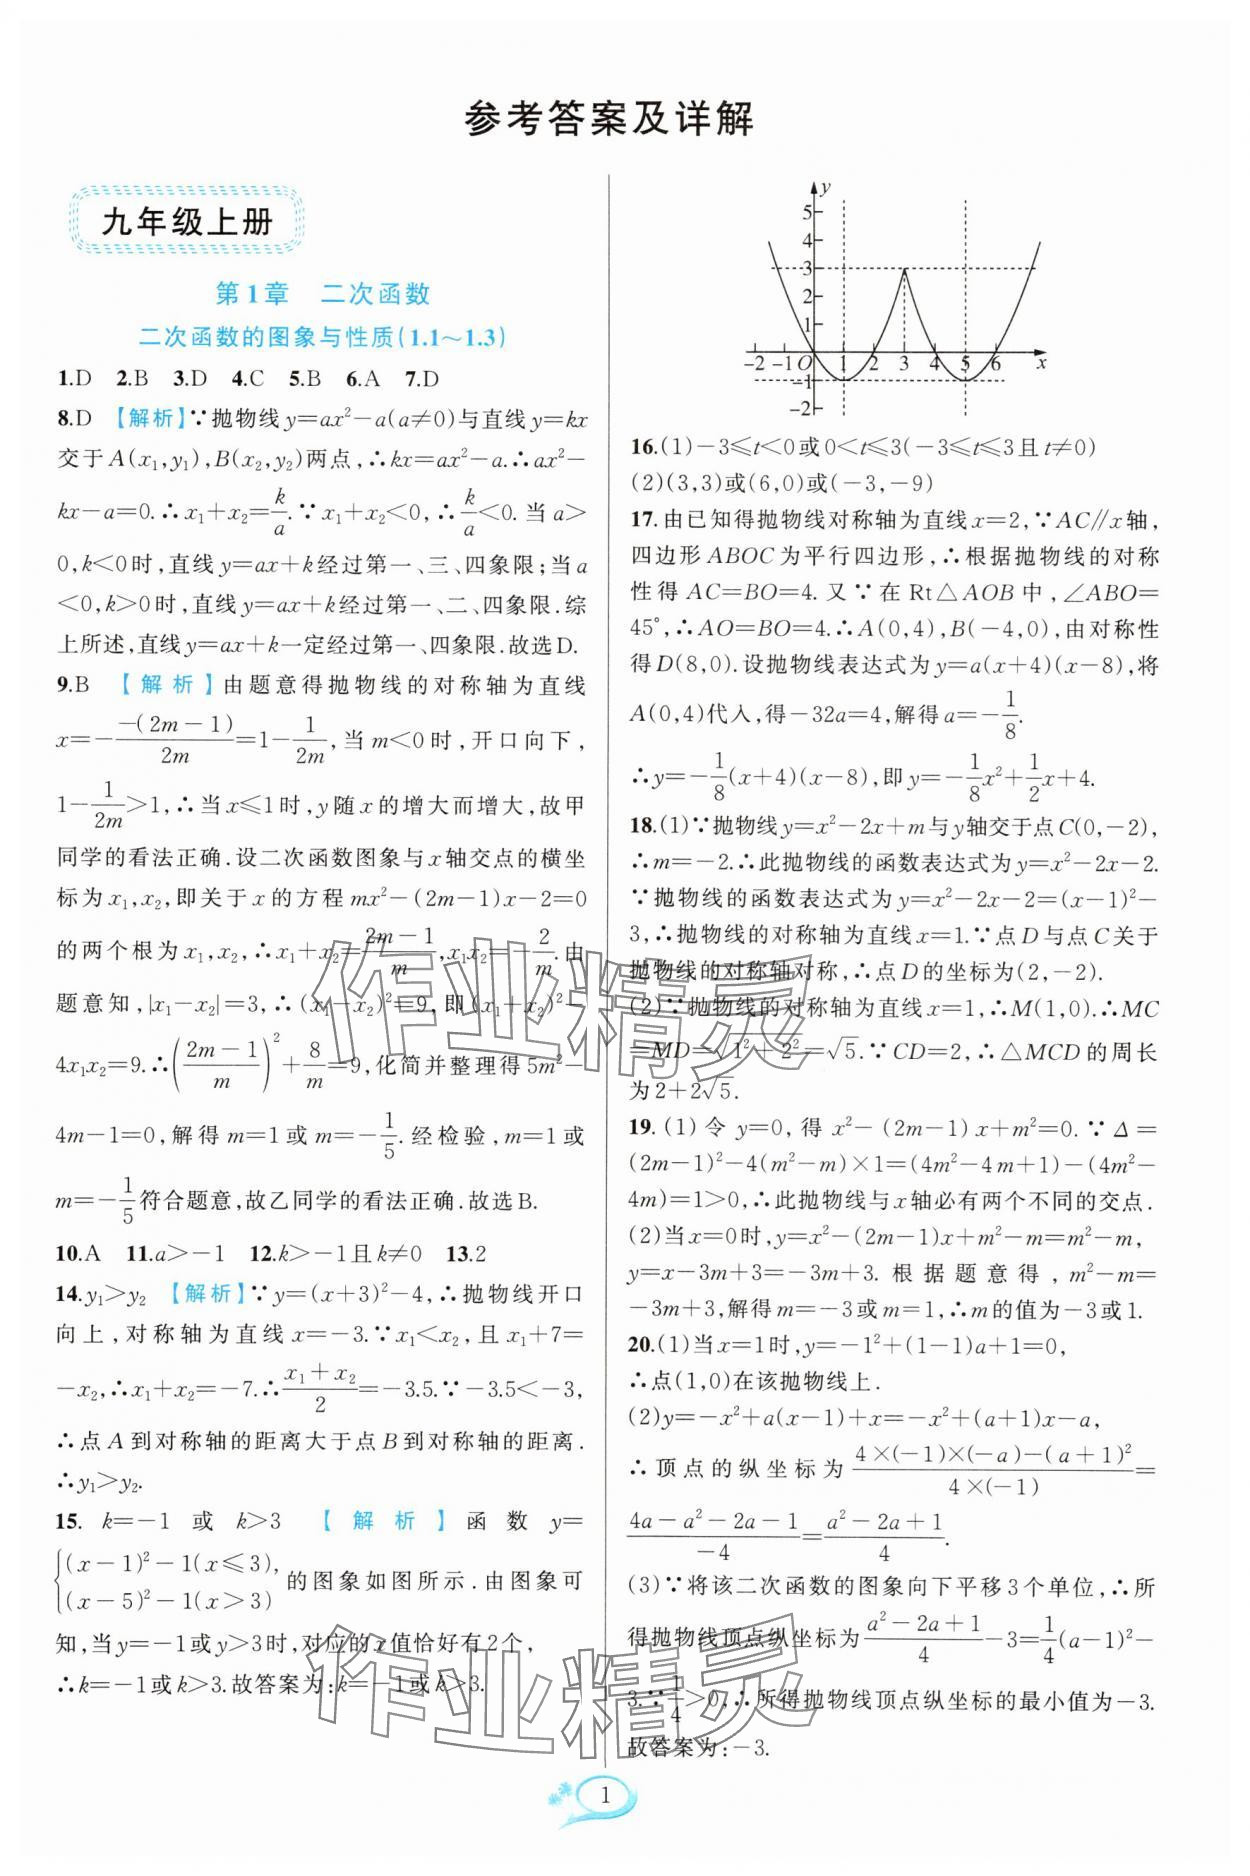 参考答案及详解
九年级上册
第1章　二次函数
二次函数的图象与性质(1.1～1.3)
1.D　2.B　3.D　4.C　5.B　6.A　7.D
8.D　【解析】∵抛物线y=ax²－a(a≠0)与直线y=kx
交于A(x₁,y₁),B(x₂,y₂)两点,∴kx=ax²－a.∴ax²－
kx－a=0.∴x₁+x₂=k/a.∵x₁+x₂<0,∴k/a<0.当a>
0,k<0时,直线y=ax+k经过第一、三、四象限;当a
<0,k>0时,直线y=ax+k经过第一、二、四象限.综
上所述,直线y=ax+k一定经过第一、四象限.故选D.
9.B　【解析】由题意得抛物线的对称轴为直线
x=－－(2m－1)/2m=1－1/2m,当m<0时,开口向下,
1－1/2m>1,∴当x≤1时,y随x的增大而增大,故甲
同学的看法正确.设二次函数图象与x轴交点的横坐
标为x₁,x₂,即关于x的方程mx²－(2m－1)x－2=0
的两个根为x₁,x₂,∴x₁+x₂=(2m－1)/m,x₁x₂=－2/m.由
题意知,|x₁－x₂|=3,∴(x₁－x₂)²=9,即(x₁+x₂)²－
4x₁x₂=9.∴((2m－1)/m)²+8/m=9,化简并整理得5m²－
4m－1=0,解得m=1或m=－1/5.经检验,m=1或
m=－1/5符合题意,故乙同学的看法正确.故选B.
10.A　11.a>－1　12.k>－1且k≠0　13.2
14.y₁>y₂　【解析】∵y=(x+3)²－4,∴抛物线开口
向上,对称轴为直线x=－3.∵x₁<x₂,且x₁+7=
－x₂,∴x₁+x₂=－7.∴(x₁+x₂)/2=－3.5.∵－3.5<－3,
∴点A到对称轴的距离大于点B到对称轴的距离.
∴y₁>y₂.
15.k=－1或k>3　【解析】函数y=
{(x－1)²－1(x≤3),
(x－5)²－1(x>3)
的图象如图所示.由图象可
知,当y=－1或y>3时,对应的x值恰好有2个,
∴k=－1或k>3.故答案为:k=－1或k>3.
y
5
4
3
2
1
－2 －1 O 1 2 3 4 5 6 x
－1
－2
16.(1)－3≤t<0或0<t≤3(－3≤t≤3且t≠0)
(2)(3,3)或(6,0)或(－3,－9)
17.由已知得抛物线对称轴为直线x=2,∵AC∥x轴,
四边形ABOC为平行四边形,∴根据抛物线的对称
性得AC=BO=4.又∵在Rt△AOB中,∠ABO=
45°,∴AO=BO=4.∴A(0,4),B(－4,0),由对称性
得D(8,0).设抛物线表达式为y=a(x+4)(x－8),将
A(0,4)代入,得－32a=4,解得a=－1/8.
∴y=－1/8(x+4)(x－8),即y=－1/8x²+1/2x+4.
18.(1)∵抛物线y=x²－2x+m与y轴交于点C(0,－2),
∴m=－2.∴此抛物线的函数表达式为y=x²－2x－2.
∵抛物线的函数表达式为y=x²－2x－2=(x－1)²－
3,∴抛物线的对称轴为直线x=1.∵点D与点C关于
抛物线的对称轴对称,∴点D的坐标为(2,－2).
(2)∵抛物线的对称轴为直线x=1,∴M(1,0).∴MC
=MD=√(1²+2²)=√5.∵CD=2,∴△MCD的周长
为2+2√5.
19.(1)令y=0,得x²－(2m－1)x+m²=0.∵Δ=
(2m－1)²－4(m²－m)×1=(4m²－4m+1)－(4m²－
4m)=1>0,∴此抛物线与x轴必有两个不同的交点.
(2)当x=0时,y=x²－(2m－1)x+m²－m=m²－m,
y=x－3m+3=－3m+3.根据题意得,m²－m=
－3m+3,解得m=－3或m=1,∴m的值为－3或1.
20.(1)当x=1时,y=－1²+(1－1)a+1=0,
∴点(1,0)在该抛物线上.
(2)y=－x²+a(x－1)+x=－x²+(a+1)x－a,
∴顶点的纵坐标为(4×(－1)×(－a)－(a+1)²)/(4×(－1))=
(4a－a²－2a－1)/－4=(a²－2a+1)/4.
(3)∵将该二次函数的图象向下平移3个单位,∴所
得抛物线顶点纵坐标为(a²－2a+1)/4－3=1/4(a－1)²－
3.∵1/4>0,∴所得抛物线顶点纵坐标的最小值为－3.
故答案为:－3.
作业精灵
作业精灵
1